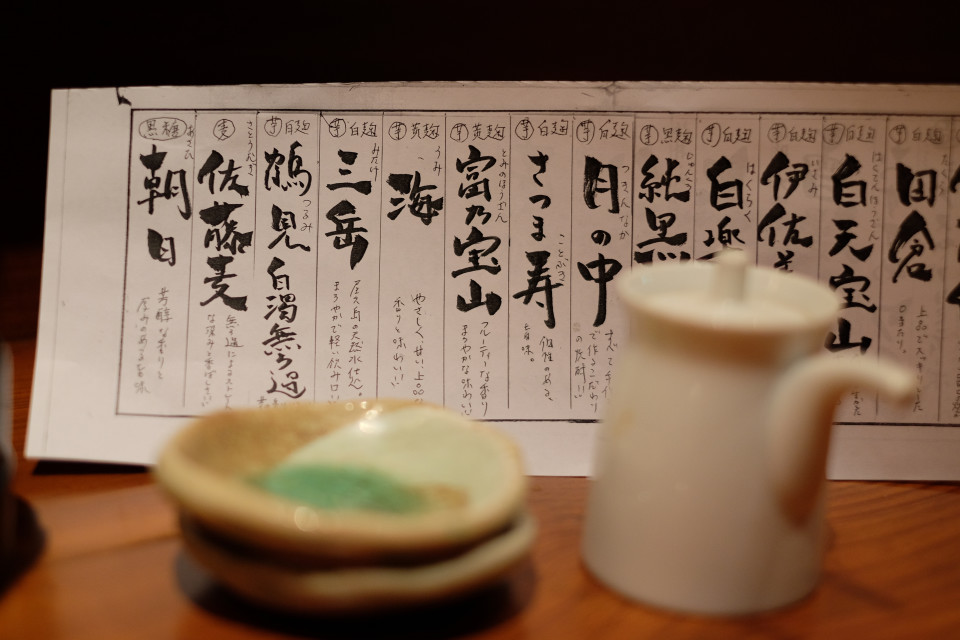 芋 白麹
たくら
田倉
上品でスッキリとした
口あたり。
芋 白麹
はくてんほうざん
白天宝山
芋 黒麹
いさみ
伊佐
芋 白麹
はくらく
白
芋 黒麹
じゅんくろ
純黒
芋 白麹
つきんなか
月の中
すべて手
で作るこだわり
の焼酎!!
芋 白麹
ことぶき
さつま寿
個性のある、
旨味。
芋 黄麹
とみのほうざん
富乃宝山
フルーティな香り
まろやかな味わい!!
芋 黄麹
うみ
海
やさしく、甘い、上品な
香りと味わい!!
芋 白麹
みたけ
三岳
屋久島の天然水仕込。
まろやかで軽い飲み口
芋 白麹
つるみ
鶴見白濁無ろ過
麦
さとうむぎ
佐藤麦
無ろ過によるストレート
な深みと香ばしさ!!
黒糖
あさひ
朝日
芳醇な香りと
厚みのある旨味